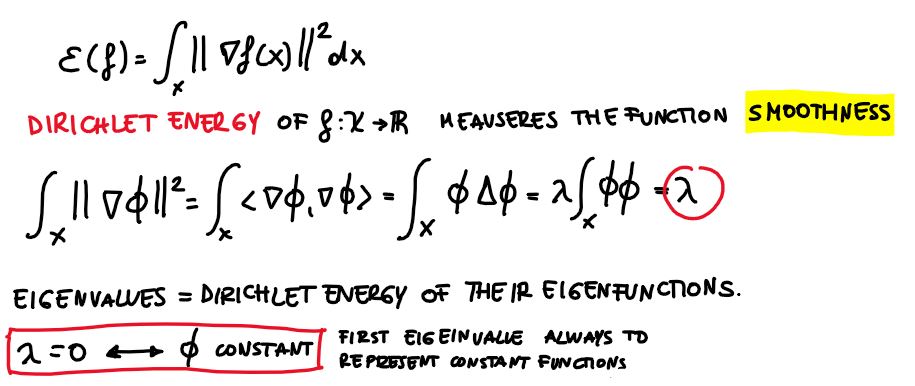 ℰ(f) = ∫_X || ∇f(x) ||² dx
DIRICHLET ENERGY OF f: X → ℝ MEAUSERES THE FUNCTION SMOOTHNESS
∫_X || ∇ϕ ||² = ∫_X <∇ϕ, ∇ϕ> = ∫_X ϕ Δϕ = λ ∫_X ϕϕ = λ
EIGENVALUES = DIRICHLET ENERGY OF THEIR EIGENFUNCTIONS.
λ = 0 ⟷ ϕ CONSTANT FIRST EIGEINVALUE ALWAYS TO
REPRESENT CONSTANT FUNCTIONS